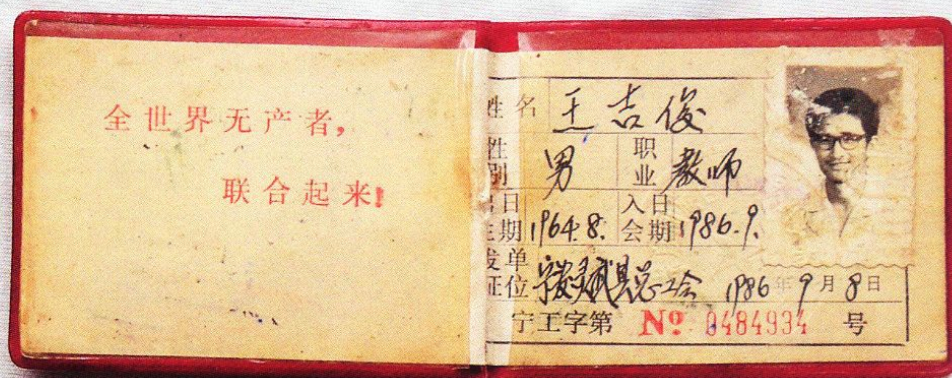 全世界无产者，
联合起来！
姓名 王吉俊
性别 男 职业 教师
出生日期 1964.8. 入会日期 1986.9.
发证单位 灵武县总工会 1986年9月8日
宁工字第 No 0484934 号